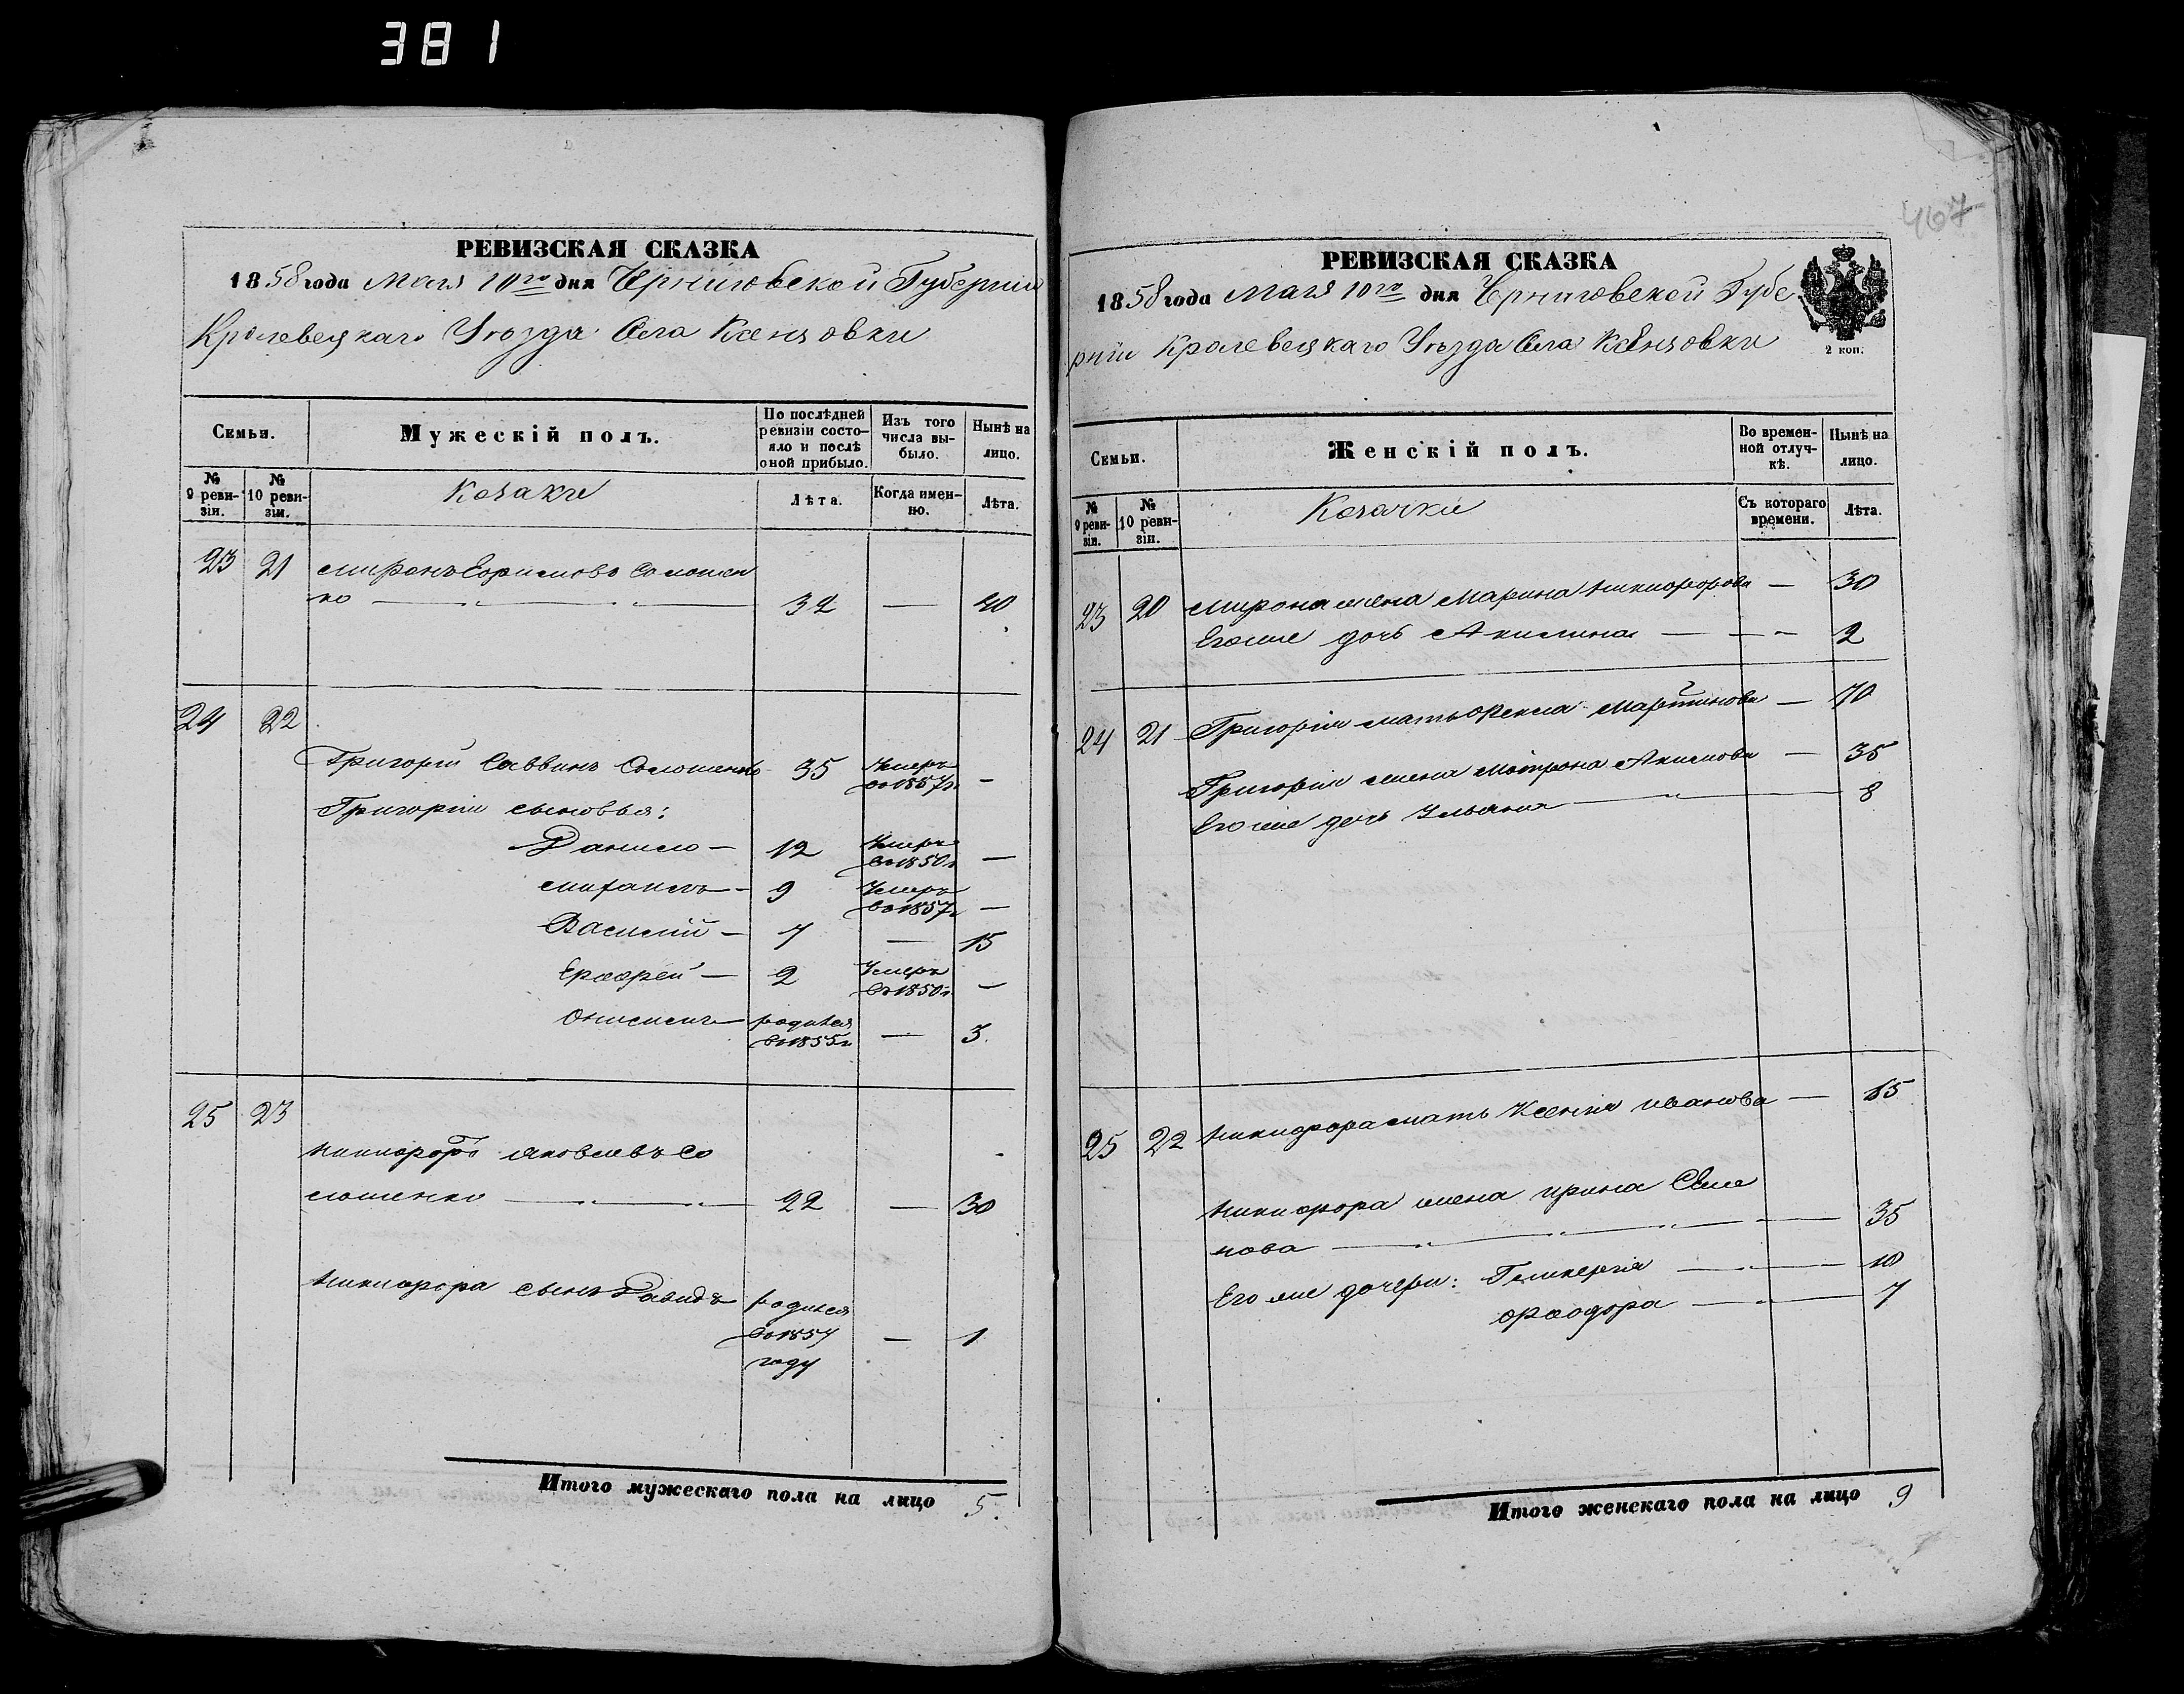 381
467
РЕВИЗСКАЯ СКАЗКА
1858 года Мая 10го дня Черниговской Губернии
Кролевецкаго Уѣзда Села Ксензовки
Семьи.
Мужескій полъ.
По послѣдней ревизіи состояло и послѣ оной прибыло.
Изъ того числа выбыло.
Нынѣ на лицо.
№ 9 ревизіи.
№ 10 ревизіи.
Козаки
Лѣта.
Когда именно.
Лѣта.
23 21 Миронъ Соломен
ко — „ — „ — 32 — 40
24 22
Григорій Саввинъ Соломенко 35 Умеръ въ 1857г. —
Григорія сыновья:
Данило — 12 Умеръ въ 1850г. —
9 Умеръ въ 1857г. —
Василій — 7 — 15
2 Умеръ въ 1850г. —
Онисимъ — родился въ 1855г. — 3.
25 23
Никифоръ Яковлевъ Со
ломенко — „ — „ — 22 — 30
Никифора сынъ Давидъ родился
въ 1857 — 1
году
Итого мужескаго пола на лицо 5.
РЕВИЗСКАЯ СКАЗКА
1858 года Мая 10го дня Черниговской Губе
рніи Кролевецкаго Уѣзда Села Ксензовки
2 коп.
Семьи.
Женскій полъ.
Во временной отлучкѣ.
Нынѣ на лицо.
№ 9 ревизіи.
№ 10 ревизіи.
Козачки
Съ котораго времени.
Лѣта.
23 20 Мирона жена Марина Никифорова — 30
Его же дочь Акилина — — 2
24 21 Григорія мать Фекла Мартинова — 70
Григорія жена Матрона Акимова — 35
Его же дочь Ульяна — „ — 8
25 22 Никифора мать Ксенія Иванова — 65
Никифора жена Ирина Семе
нова — „ — „ — 35
Его же дочери: Гликерія — „ — 10
Феодора — „ — 7
Итого женскаго пола на лицо 9